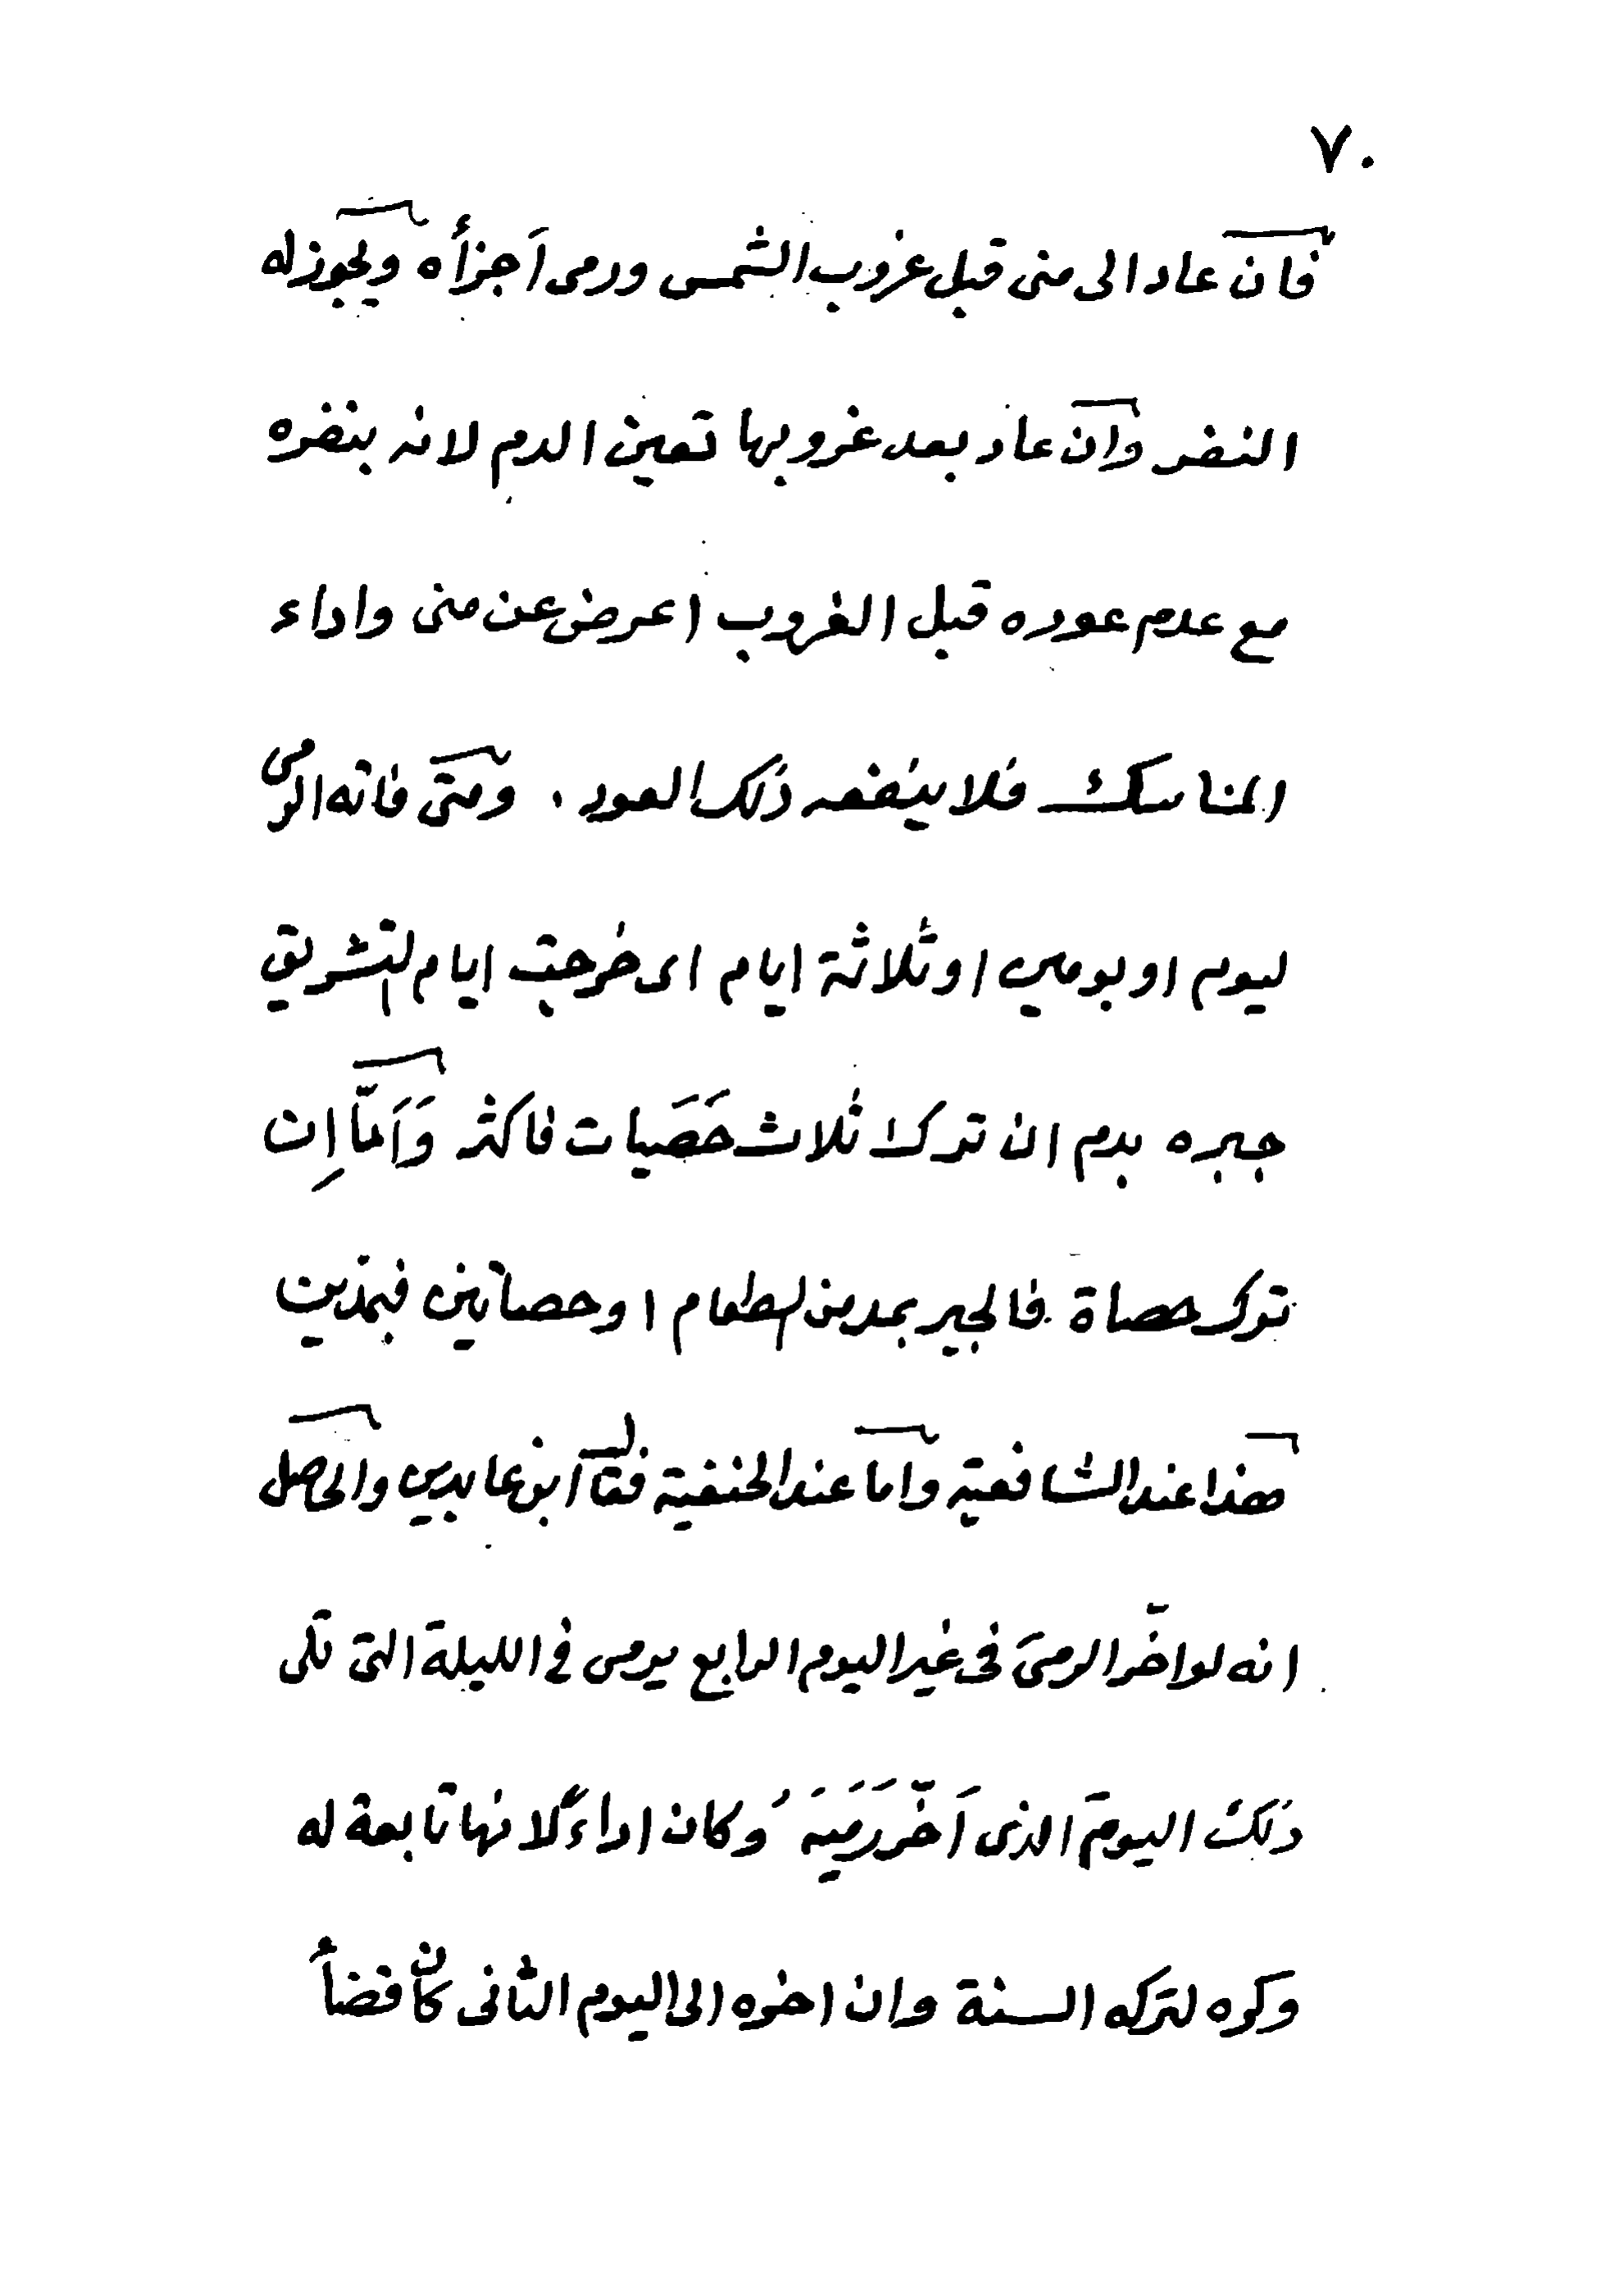 ٧٠
فان عاد الى منى قبل غروب الشمس ورمى أجزأه ويجوز له
النفر وان عاد بعد غروبها تعين الدم لانه بنفره
مع عدم عوده قبل الغروب اعرض عن منى واداء
المناسك فلا ينفعه ذلك العود . ومتى فاته الرمى
ليوم او يومين او ثلاثة ايام اى خرجت ايام التشريق
جبره بدم ان ترك ثلاث حَصَيات فاكثر وَأَمَّا اِن
ترك حصاة فالجبر بمد من الطعام او حصاتين فبمدّين
هذا عند الشافعية واما عند الحنفية فقال ابن عابدين والحاصل
انه لو اخّر الرمىَ فى غير اليوم الرابع يرمى فى الليلة التى تلى
ذلك اليومَ الذى أَخَّرَ رَميَهُ وكان اداءً لانها تابعة له
وكره لتركه السنة وان اخره الى اليوم الثانى كان قضاءً